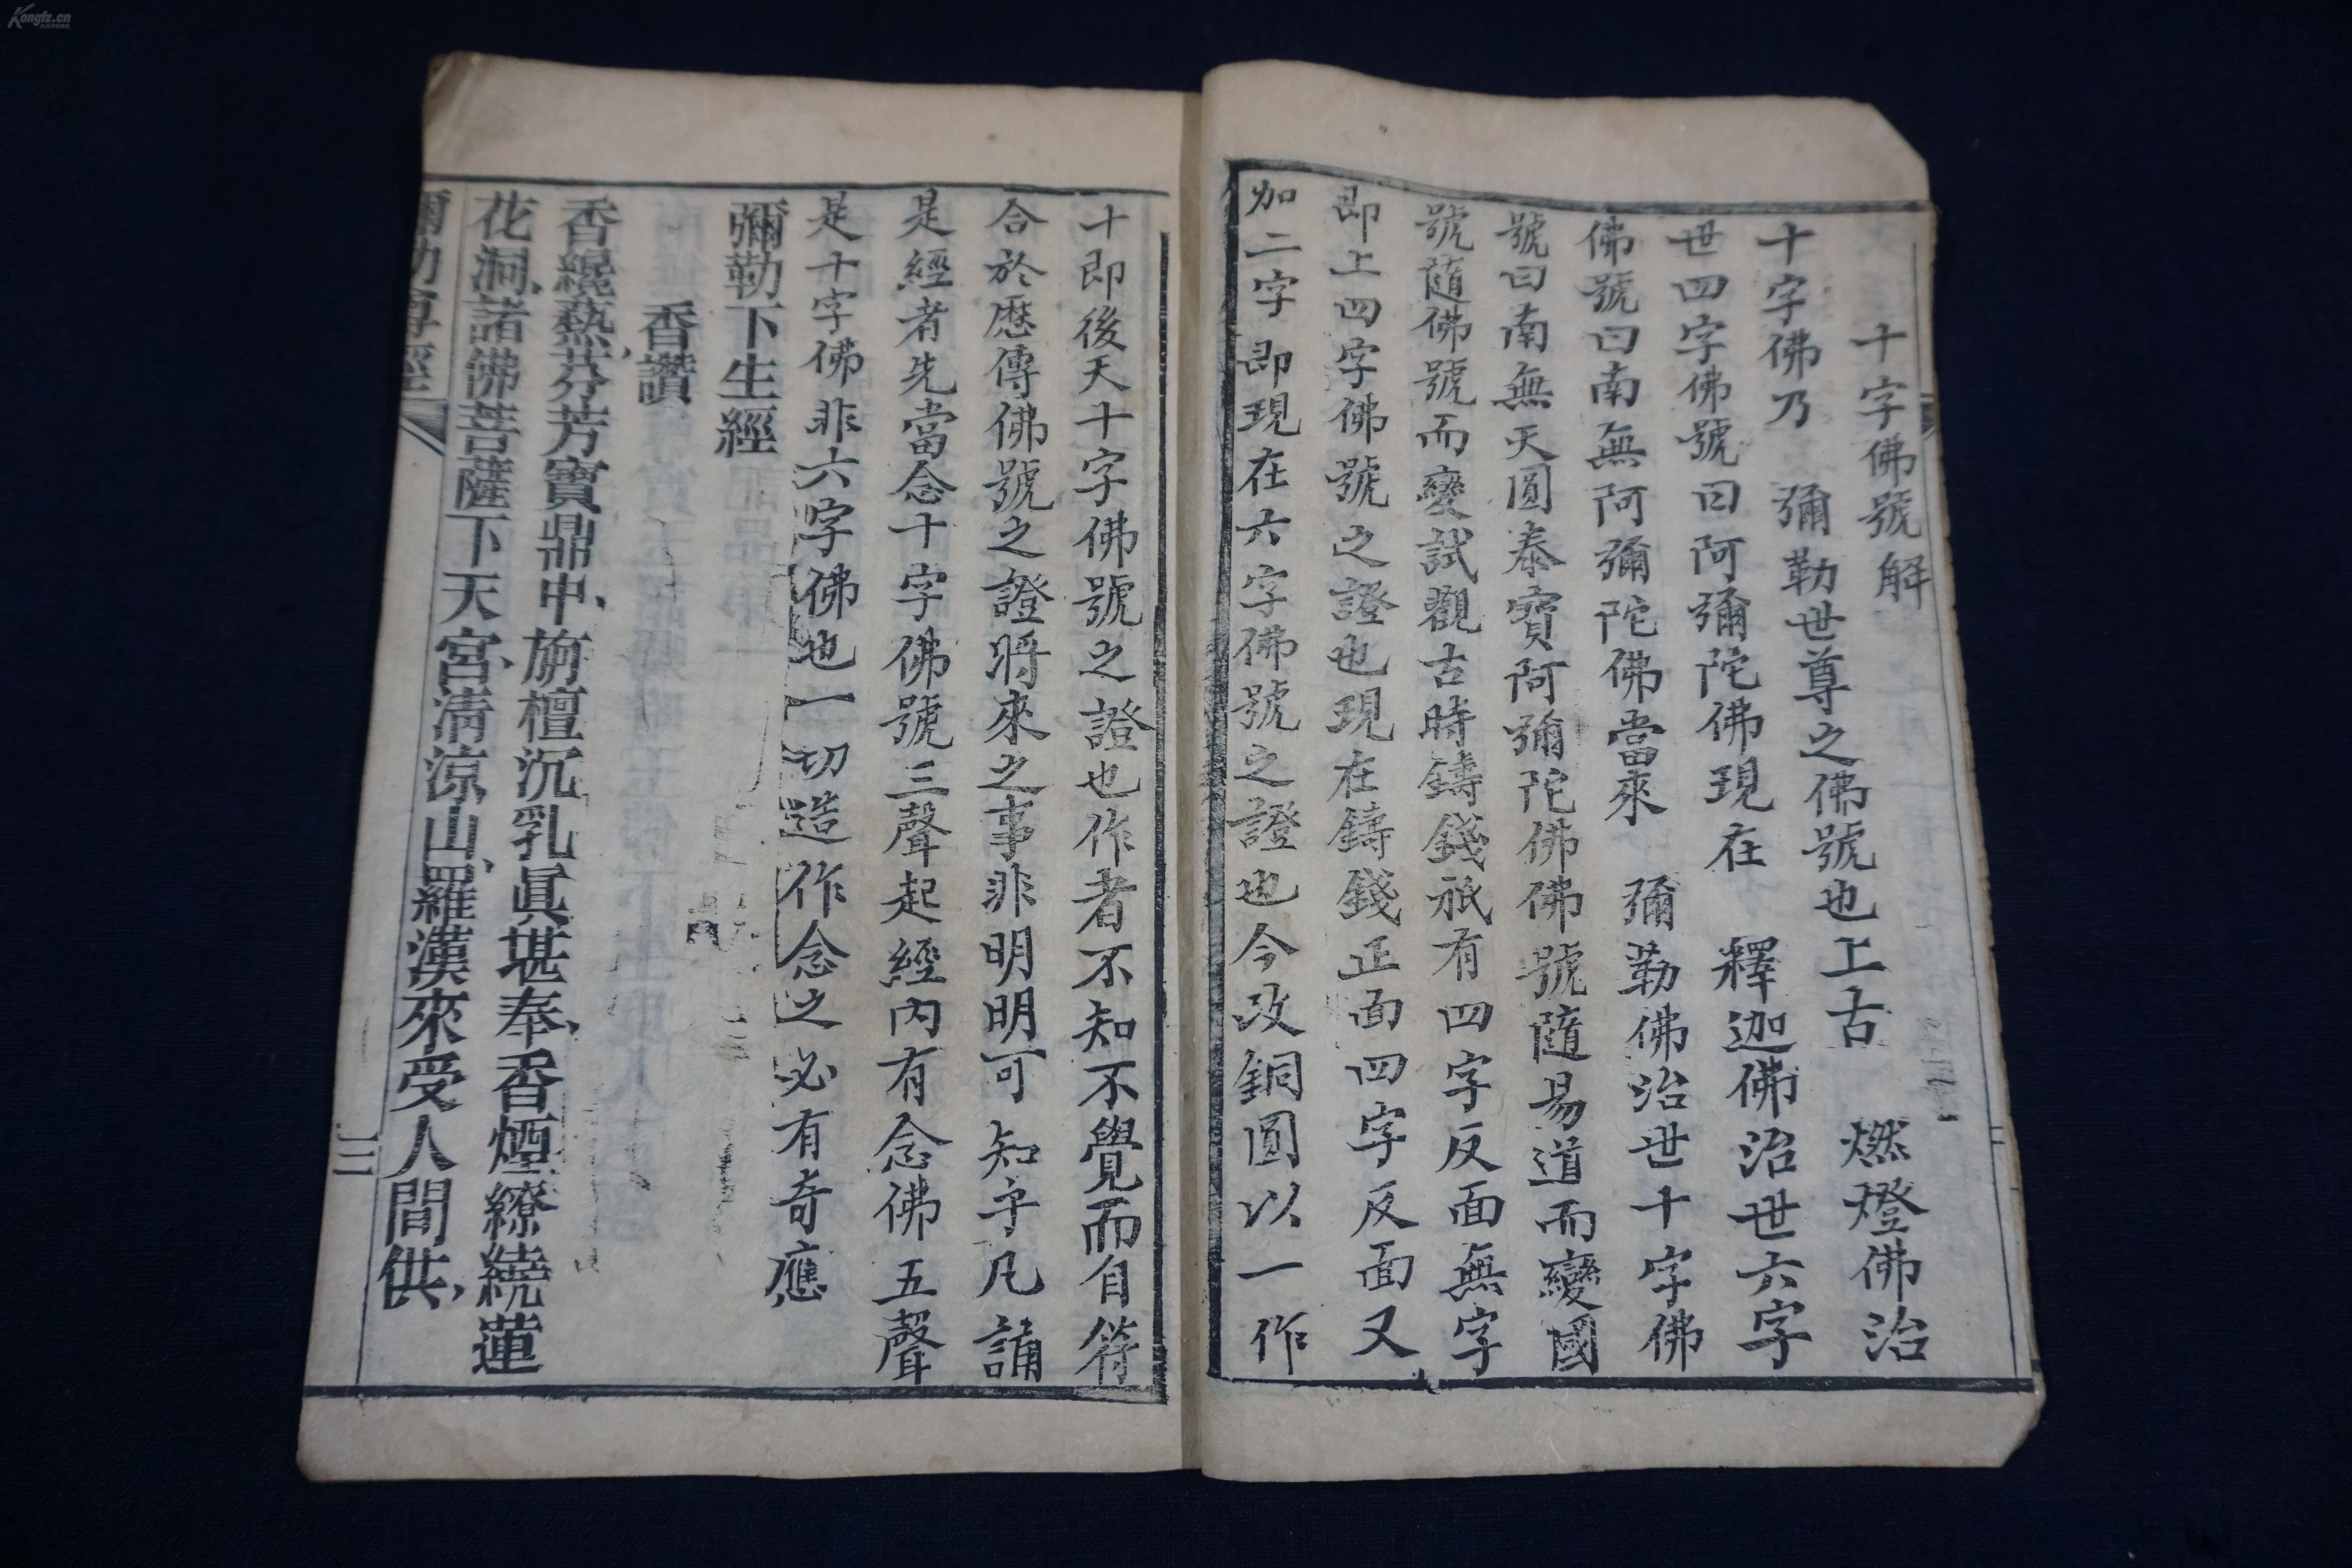 十字佛號解
十字佛乃 彌勒世尊之佛號也上古 燃燈佛治
世四字佛號曰阿彌陀佛現在 釋迦佛治世六字
佛號曰南無阿彌陀佛當來 彌勒佛治世十字佛
號曰南無天圓泰寶阿彌陀佛佛號隨易道而變國
號隨佛號而變試觀古時鑄錢祇有四字反面無字
即上四字佛號之證也現在鑄錢正面四字反面又
加二字即現在六字佛號之證也今改銅圓以一作
十即後天十字佛號之證也作者不知不覺而自符
合於歷傳佛號之證將來之事非明明可知乎凡誦
是經者先當念十字佛號三聲起經內有念佛五聲
是十字佛非六字佛也一切造作念之必有奇應
彌勒下生經
香讚
香纔爇、芬芳寶鼎中、旃檀沉乳眞堪奉、香煙繚繞蓮
花洞、諸佛菩薩下天宮、清涼山、羅漢來受人間供、
彌勒尊經
三
Kongfz.cn